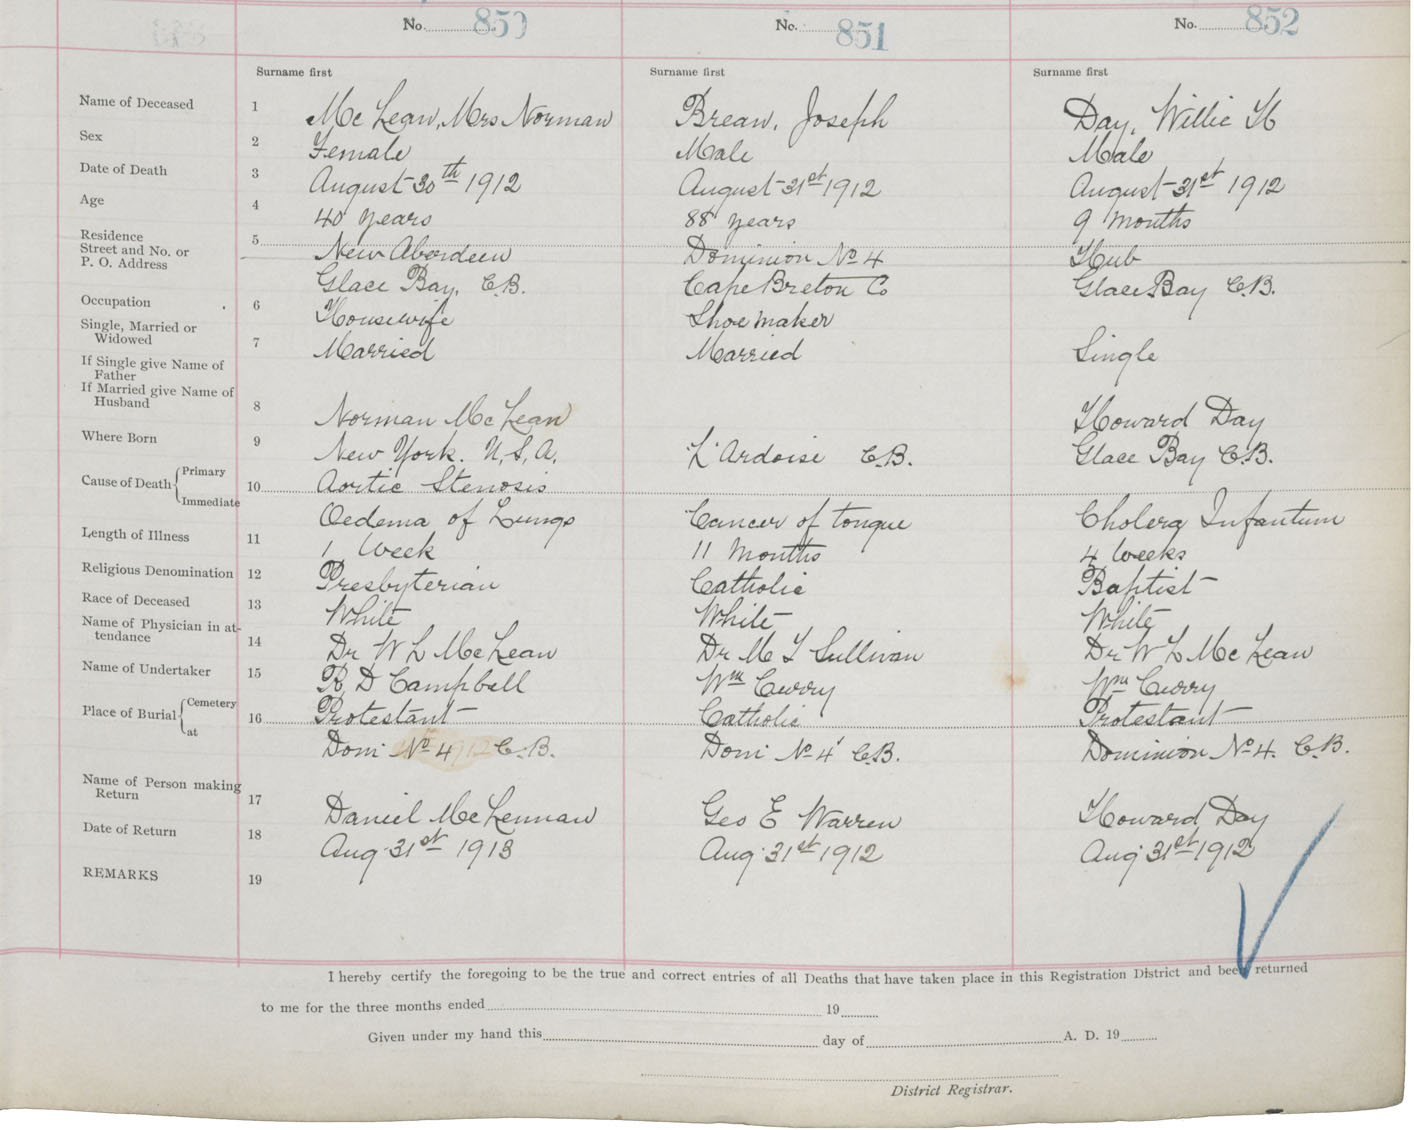 No. 850 No. 851 No. 852
Surname first Surname first Surname first
Name of Deceased 1 McLean, Mrs Norman Breaw, Joseph Day, Willie H
Sex 2 Female Male Male
Date of Death 3 August 30th 1912 August 31st 1912 August 31st 1912
Age 4 40 years 88 years 9 months
Residence 5 New Aberdeen Dominion No 4 Hub
Street and No. or
P. O. Address Glace Bay, C.B. Cape Breton Co Glace Bay C.B.
Occupation 6 Housewife Shoemaker
Single, Married or
Widowed 7 Married Married Single
If Single give Name of
Father
If Married give Name of
Husband 8 Norman McLean Howard Day
Where Born 9 New York. U.S.A. L'Ardoise C.B. Glace Bay C.B.
Cause of Death Primary 10 Aortic Stenosis
Immediate Oedema of Lungs Cancer of tongue Cholera Infantum
Length of Illness 11 1 Week 11 Months 4 Weeks
Religious Denomination 12 Presbyterian Catholic Baptist
Race of Deceased 13 White White White
Name of Physician in at-
tendance 14 Dr W L McLean Dr M T Sullivan Dr W L McLean
Name of Undertaker 15 R D Campbell Wm Curry Wm Curry
Place of Burial Cemetery 16 Protestant Catholic Protestant
at Dom No 4 C.B. Dom No 4 C.B. Dominion No 4. C.B.
Name of Person making
Return 17 Daniel McLennan Geo E Warren Howard Day
Date of Return 18 Aug 31st 1913 Aug 31st 1912 Aug 31st 1912
REMARKS 19
I hereby certify the foregoing to be the true and correct entries of all Deaths that have taken place in this Registration District and been returned
to me for the three months ended 19
Given under my hand this day of A. D. 19
District Registrar.